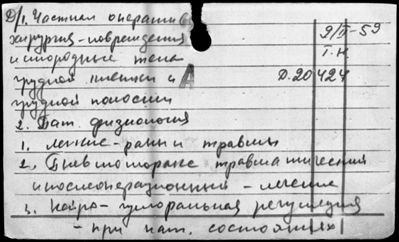 Д/1. Частная оператив.
хирургия - повреждения 9/II-59
инородные тела Т.Н
грудной клетки и А Д.20424
грудной полости
2. Пат. физиология
1. легкие - раны и травмы
2. Пневмоторакс травматический
и послеоперационный - лечение
3. Нейро-гуморальная регуляция
- при пат. состояниях